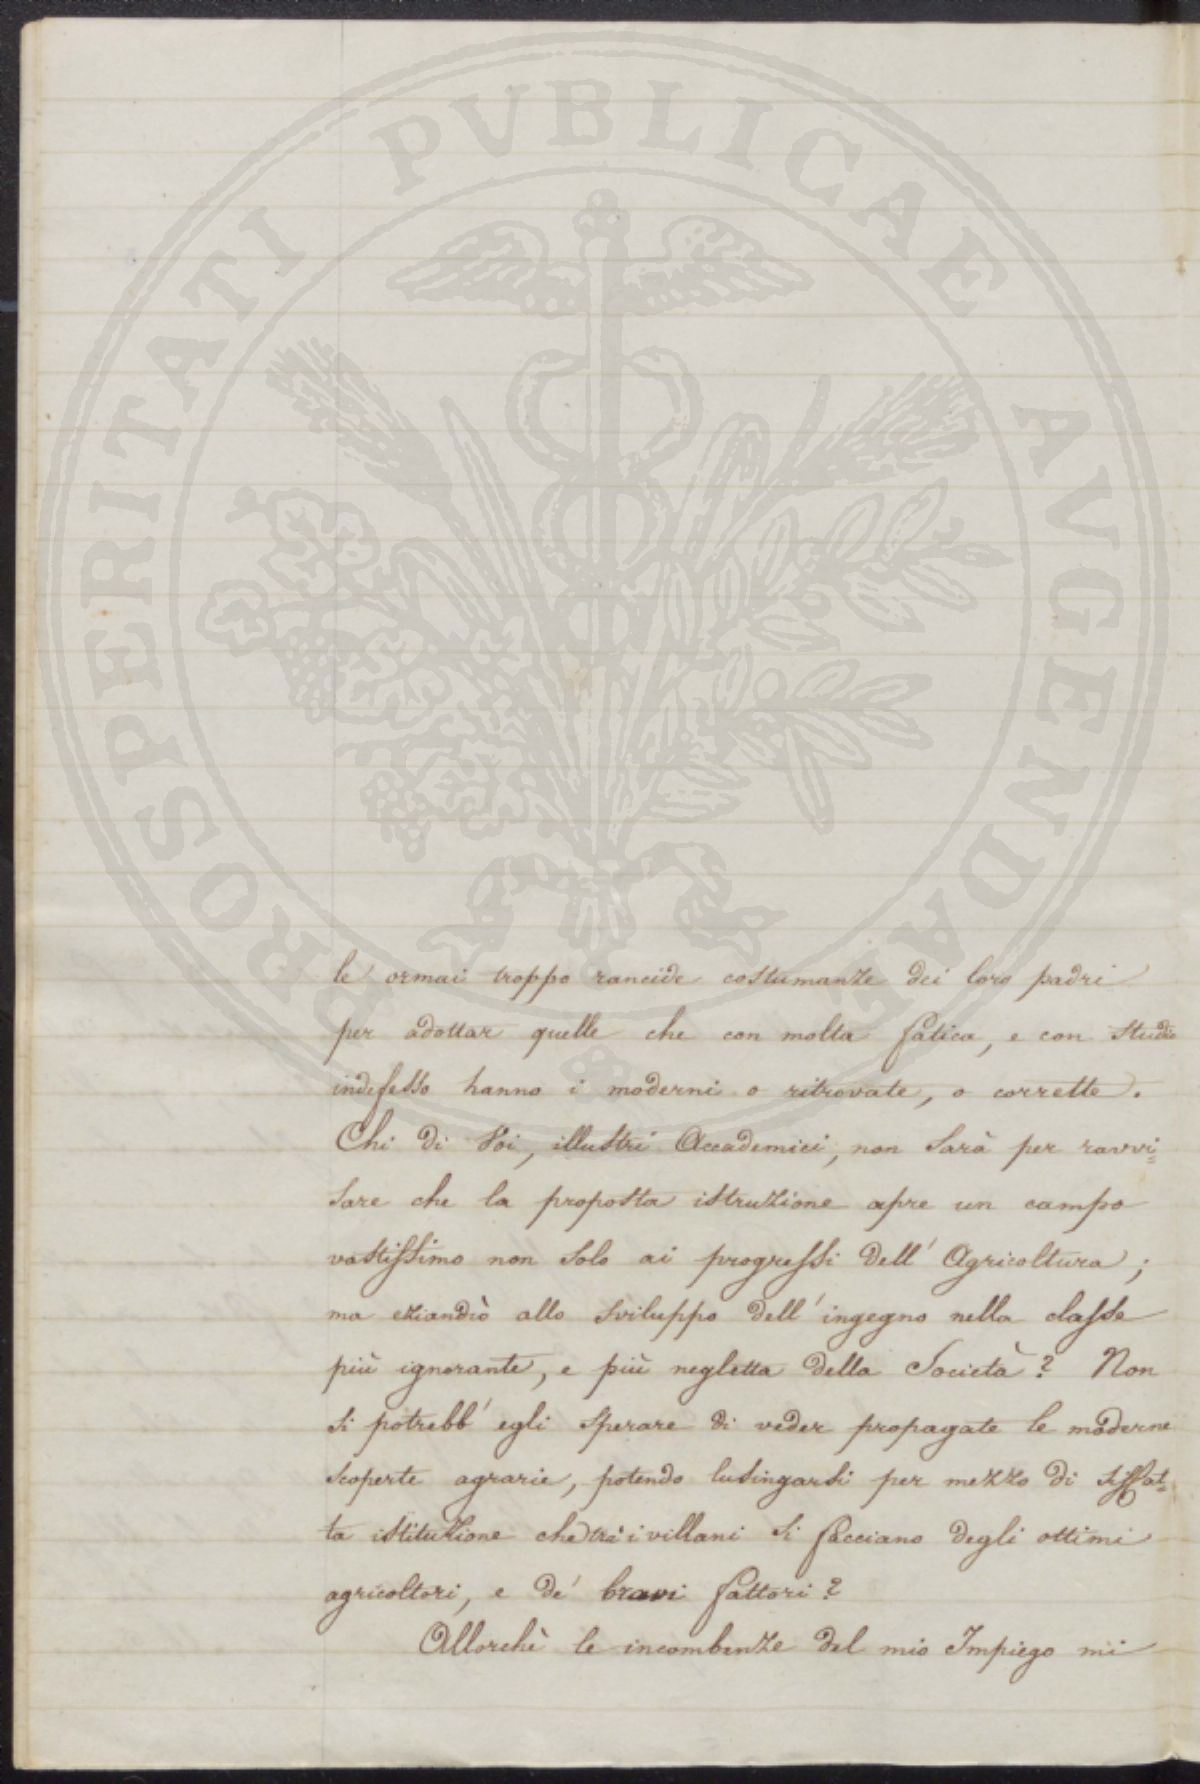 PROSPERITATI PUBLICAE AVGENDAE
le ormai troppo rancide costumanze dei loro padri
per adottar quelle che con molta fatica, e con studio
indefesso hanno i moderni o ritrovate, o corrette.
Chi di Voi, illustri Accademici, non sarà per ravvi=
sare che la proposta istruzione apre un campo
vastissimo non solo ai progressi dell' Agricoltura;
ma eziandiò allo sviluppo dell' ingegno nella classe
più ignorante, e più negletta della Società? Non
si potrebb' egli sperare di veder propagate le moderne
scoperte agrarie, potendo lusingarsi per mezzo di siffat=
ta istituzione che tra i villani si facciano degli ottimi
agricoltori, e de' bravi fattori?
Allorchè le incombenze del mio Impiego mi